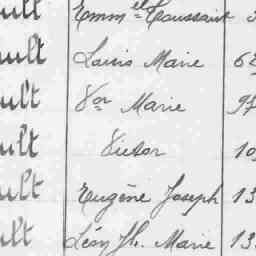 ult Emm^el Toussaint
ault Louis Marie 6
ault V^or Marie 97
ult Victor 10
ult Eugène Joseph 13
ult Léon Jh. Marie 13